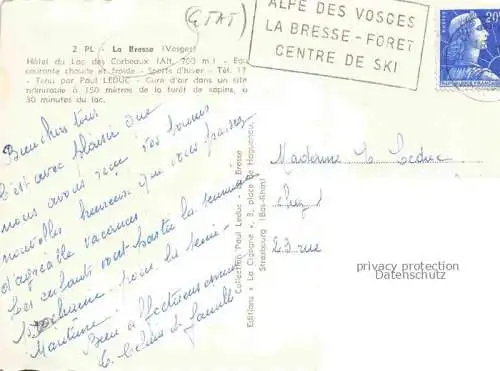 (ETAT)
ALPE DES VOSGES
LA BRESSE-FORET
CENTRE DE SKI
20F
2 PL - La Bresse (Vosges)
Hôtel du Lac des Corbeaux (Alt. 900 m.) - Eau
courante chaude et froide - Sports d'hiver - Tél. 17
- Tenu par Paul LEDUC - Cure d'air dans un site
admirable à 150 mètres de la forêt de sapins, à
30 minutes du lac.
Bien chers tous
C'est avec plaisir que
nous avons reçu vos bonnes
nouvelles heureux que vous passez
d'agréable vacances
Les enfants vont partir la semaine
prochaine pour la Seine-
Maritime.
Bien affectueusement
Collection Paul Leduc
Editions « La Cigogne », 3, place de Haguenau
Strasbourg (Bas-Rhin)
Madame Leduc
chez
23 rue
privacy protection
Datenschutz